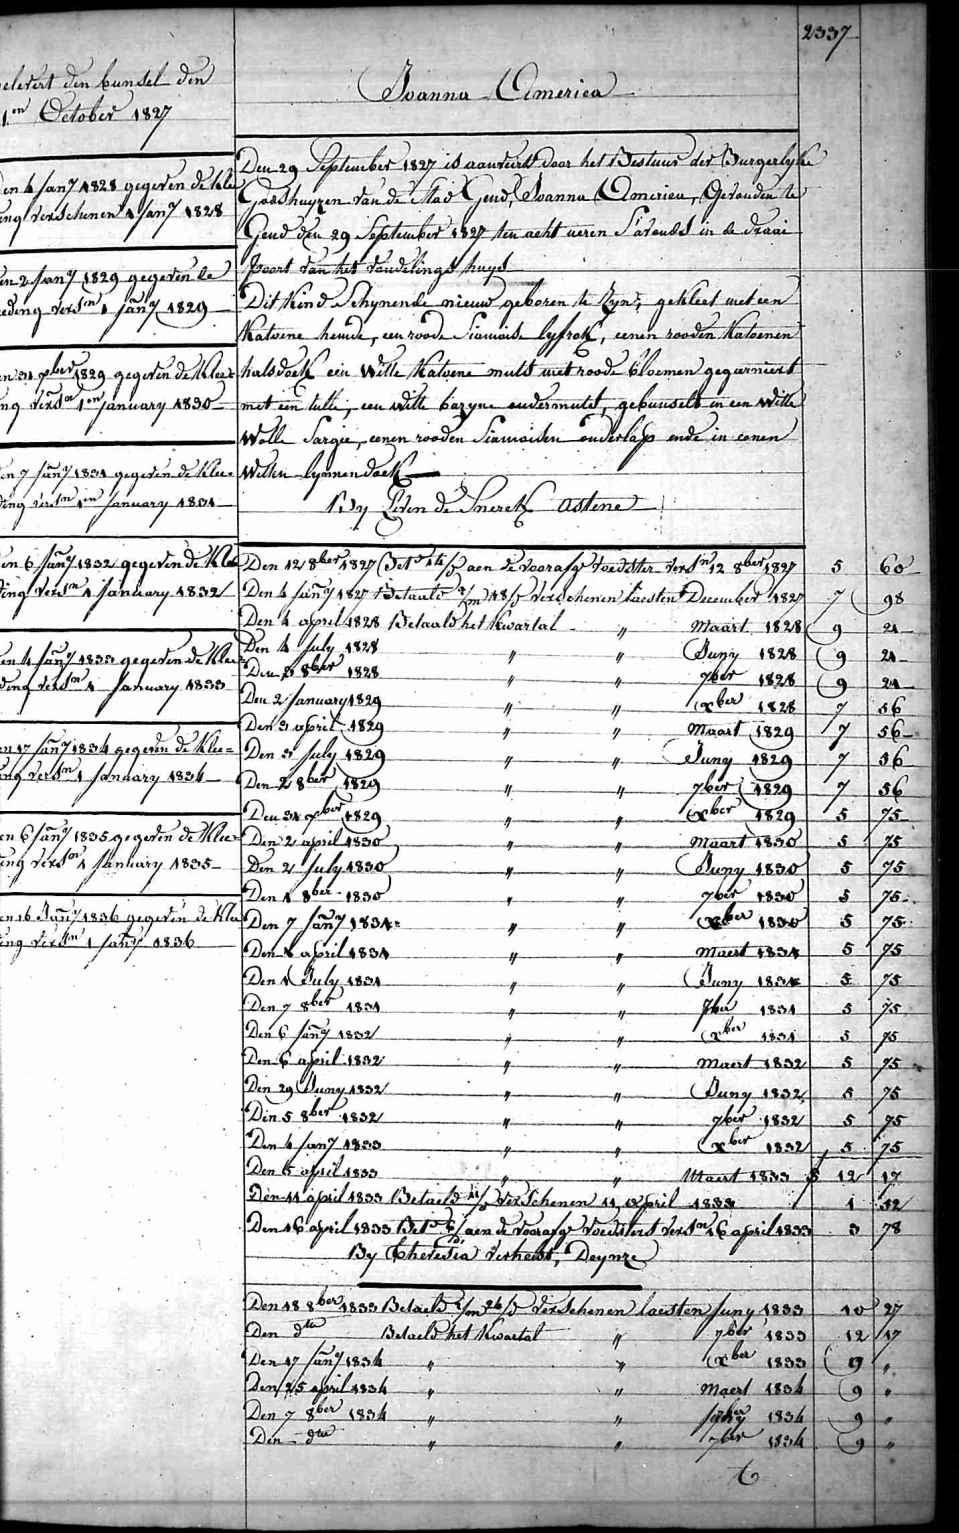 2337
elevert den bunsel den
1.en October 1827
en 4 Jany 1828 gegeven de Klee
ing verschenen 1 Jany 1828
en 2 Jany 1829 gegeven de
eding versn 1 Jany 1829
en 31 xber 1829 gegeven de Klee=
ng versn 1en January 1830
en 7 Jany 1831 gegeven de Klee=
ding versn 1en January 1831
en 6 Jany 1832 gegeven de Klee
ding versn 1 January 1832
en 4 Jany 1833 gegeven de Klee=
ding versn 1 January 1833
en 17 Jany 1834 gegeven de Klee=
ing versn 1 January 1834
en 6 Jany 1835 gegeven de Klee=
ing versn 1 January 1835
en 16 Jany 1836 gegeven de Klee
ing versn 1 Jany 1836
Joanna America
Den 29 September 1827 is aanveird door het Bestuur der Burgerlyke
Godshuyzen van de Stad Gend, Joanna America, Gevonden te
Gend den 29 September 1827 ten acht ueren S'avonds in de draai
poort van het vondelings huys
Dit Kind Schynende nieuw geboren te Zyn, gekleet met een
Katoene hemde, een roode Siamoise lyfrok, eenen rooden Katoenen
halsdoek een Witte Katoene muts met roode bloemen gegarniert
met een tulle, een Witte bazyne ondermuts, gebunselt in een Witte
Wolle Sargie, eenen rooden Siamoisen onderlap ende in eenen
Witten lynnen doek
By Leven de Snerck Astene
Den 12 8ber 1827 Bet. 14/d aen de voorsg Voedster versn 12 8ber 1827 5 60
Den 4 Jany 1827 Betaald 2/m 18/d verschenen laesten December 1827 7 98
Den 4 april 1828 Betaald het Kwartal " Maart 1828 9 21
Den 4 July 1828 " " Juny 1828 9 21
Den 3 8ber 1828 " " 7ber 1828 9 21
Den 2 January 1829 " " xber 1828 7 56
Den 3 april 1829 " " Maart 1829 7 56
Den 3 July 1829 " " Juny 1829 7 56
Den 2 8ber 1829 " " 7ber 1829 7 56
Den 31 xber 1829 " " xber 1829 5 75
Den 2 april 1830 " " Maart 1830 5 75
Den 2 July 1830 " " Juny 1830 5 75
Den 1 8ber 1830 " " 7ber 1830 5 75
Den 7 Jany 1831 " " xber 1830 5 75
Den 8 april 1831 " " Maert 1831 5 75
Den 1 July 1831 " " Juny 1831 5 75
Den 7 8ber 1831 " " 7ber 1831 5 75
Den 6 Jany 1832 " " xber 1831 5 75
Den 6 april 1832 " " Maert 1832 5 75
Den 29 Juny 1832 " " Juny 1832 5 75
Den 5 8ber 1832 " " 7ber 1832 5 75
Den 4 Jany 1833 " " xber 1832 5 75
Den 5 april 1833 " " Maert 1833 12 17
Den 11 april 1833 Betaeld 11/d verschenen 11 April 1833 1 52
Den 16 april 1833 Bet. aen de voorsg Voedsters versn 16 april 1833 3 78
By Theresia Verhelst, Deynze
Den 18 8ber 1833 Betaeld 2/m 26/d verschenen laesten Juny 1833 10 27
Den dto Betaeld het Kwartal " 7ber 1833 12 17
Den 17 Jany 1834 " " xber 1833 9 "
Den 25 april 1834 " " Maert 1834 9 "
Den 7 8ber 1834 " " Juny 1834 9 "
Den dto " " 7ber 1834 9 "